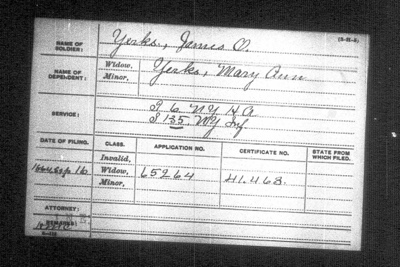 (3-21-8)
NAME OF SOLDIER: Yerks, James O.
NAME OF DEPENDENT: Widow, Yerks, Mary Ann
Minor,
SERVICE: I 6 NY H A
I 135 NY Inf.
DATE OF FILING. CLASS. APPLICATION NO. CERTIFICATE NO. STATE FROM WHICH FILED.
Invalid,
Widow, 65264 41.463.
Minor,
ATTORNEY:
REMARKS: